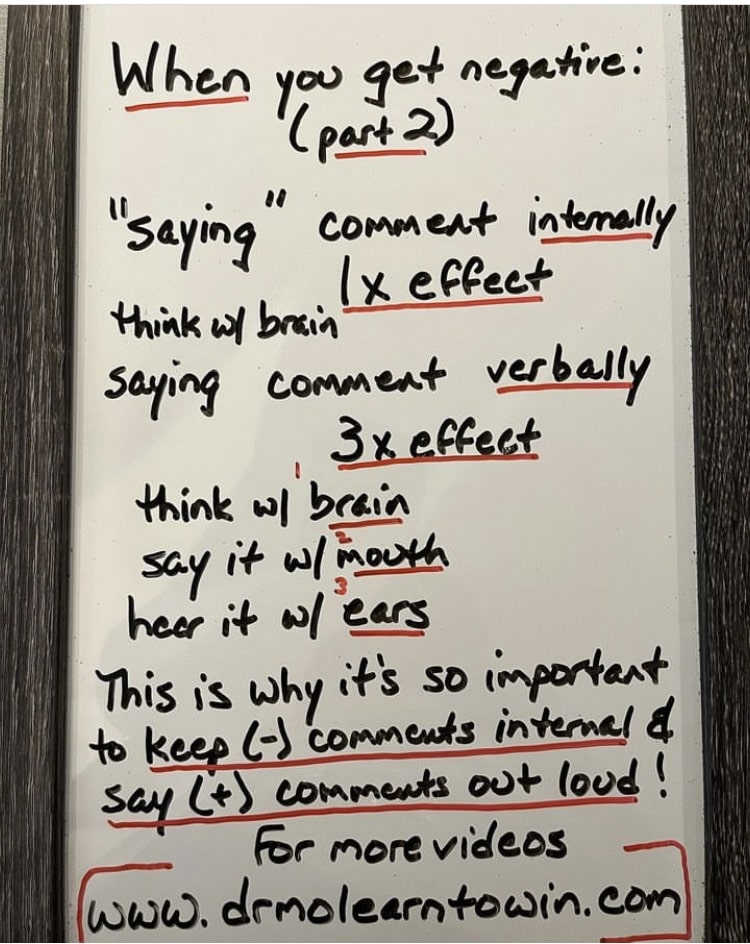 When you get negative:
(part 2)
"saying" comment internally
1x effect
think w/ brain
saying comment verbally
3x effect
1
think w/ brain
2
say it w/ mouth
3
hear it w/ ears
This is why it's so important
to keep (-) comments internal &
say (+) comments out loud!
For more videos
www.drmolearntowin.com